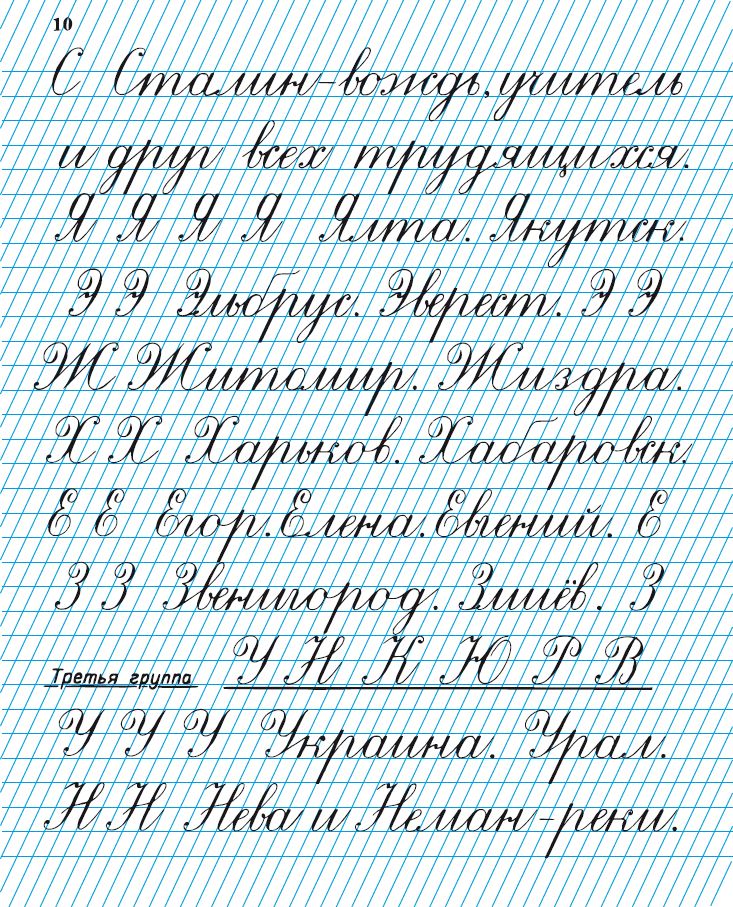 10
С Сталин-вождь, учитель
и друг всех трудящихся.
Я Я Я Я Ялта. Якутск.
Э Э Эльбрус. Эверест. Э Э
Ж Житомир. Жиздра.
Х Х Харьков. Хабаровск.
Е Е Егор. Елена. Евгений. Е
З З Звенигород. Змиёв. З
Третья группа У Н К Ю Р В
У У У Украина. Урал.
Н Н Нева и Неман - реки.